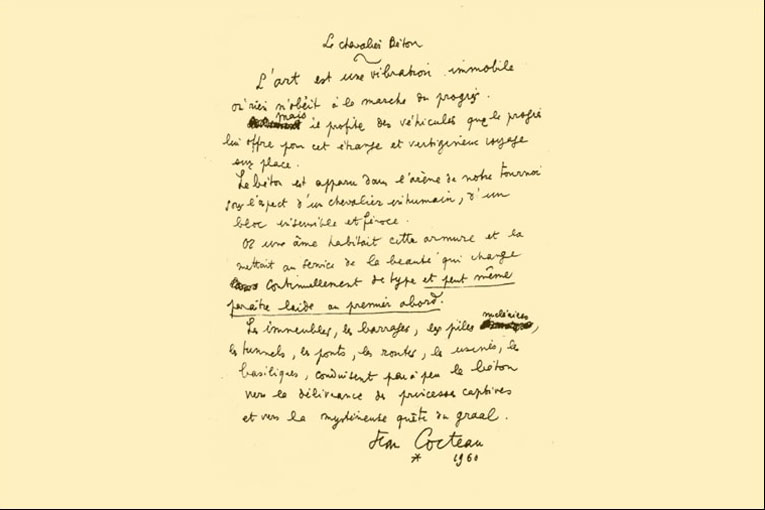 Le chevalier Béton
L'art est une vibration immobile
où rien n'obéit à la marche du progrès.
mais
il profite des véhicules que le progrès
lui offre pour cet étrange et vertigineux voyage
sur place.
Le béton est apparu dans l'arène de notre tournoi
sous l'aspect d'un chevalier inhumain, d'un
bloc insensible et féroce.
Or une âme habitait cette armure et la
mettait au service de la beauté qui change
continuellement de type et peut même
paraître laide au premier abord.
Les immeubles, les barrages, les piles nucléaires,
les tunnels, les ponts, les routes, les usines, les
basiliques, conduisent peu à peu le béton
vers la délivrance de princesses captives
et vers la mystérieuse quête du graal.
Jean Cocteau
* 1960